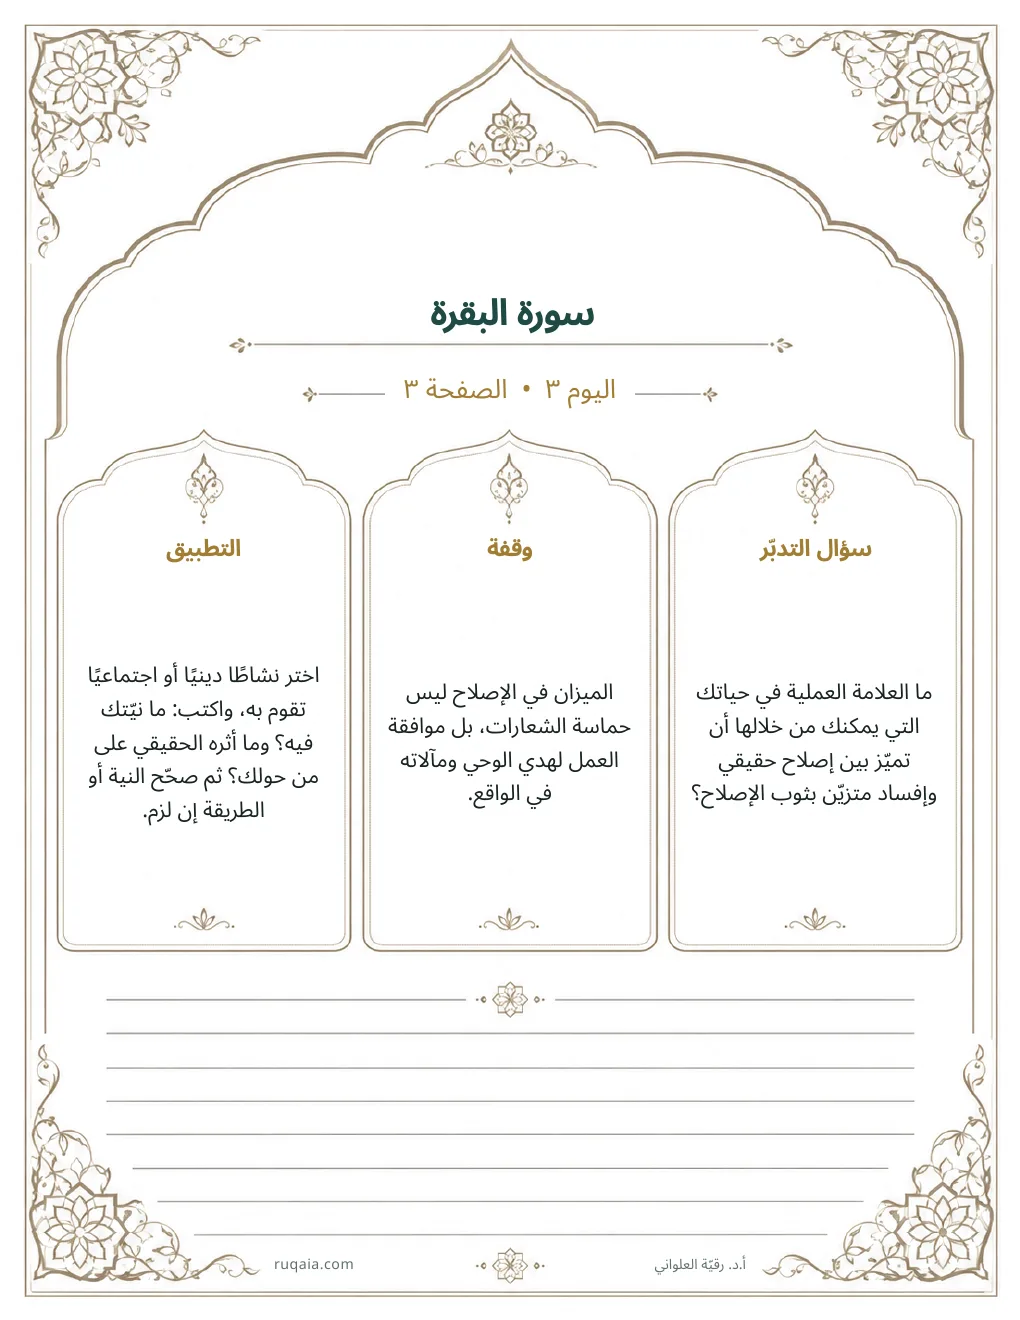 سورة البقرة
اليوم ٣ • الصفحة ٣
سؤال التدبّر
ما العلامة العملية في حياتك
التي يمكنك من خلالها أن
تميّز بين إصلاح حقيقي
وإفساد متزيّن بثوب الإصلاح؟
وقفة
الميزان في الإصلاح ليس
حماسة الشعارات، بل موافقة
العمل لهدي الوحي ومآلاته
في الواقع.
التطبيق
اختر نشاطًا دينيًا أو اجتماعيًا
تقوم به، واكتب: ما نيّتك
فيه؟ وما أثره الحقيقي على
من حولك؟ ثم صحّح النية أو
الطريقة إن لزم.
أ.د. رقيّة العلواني
ruqaia.com